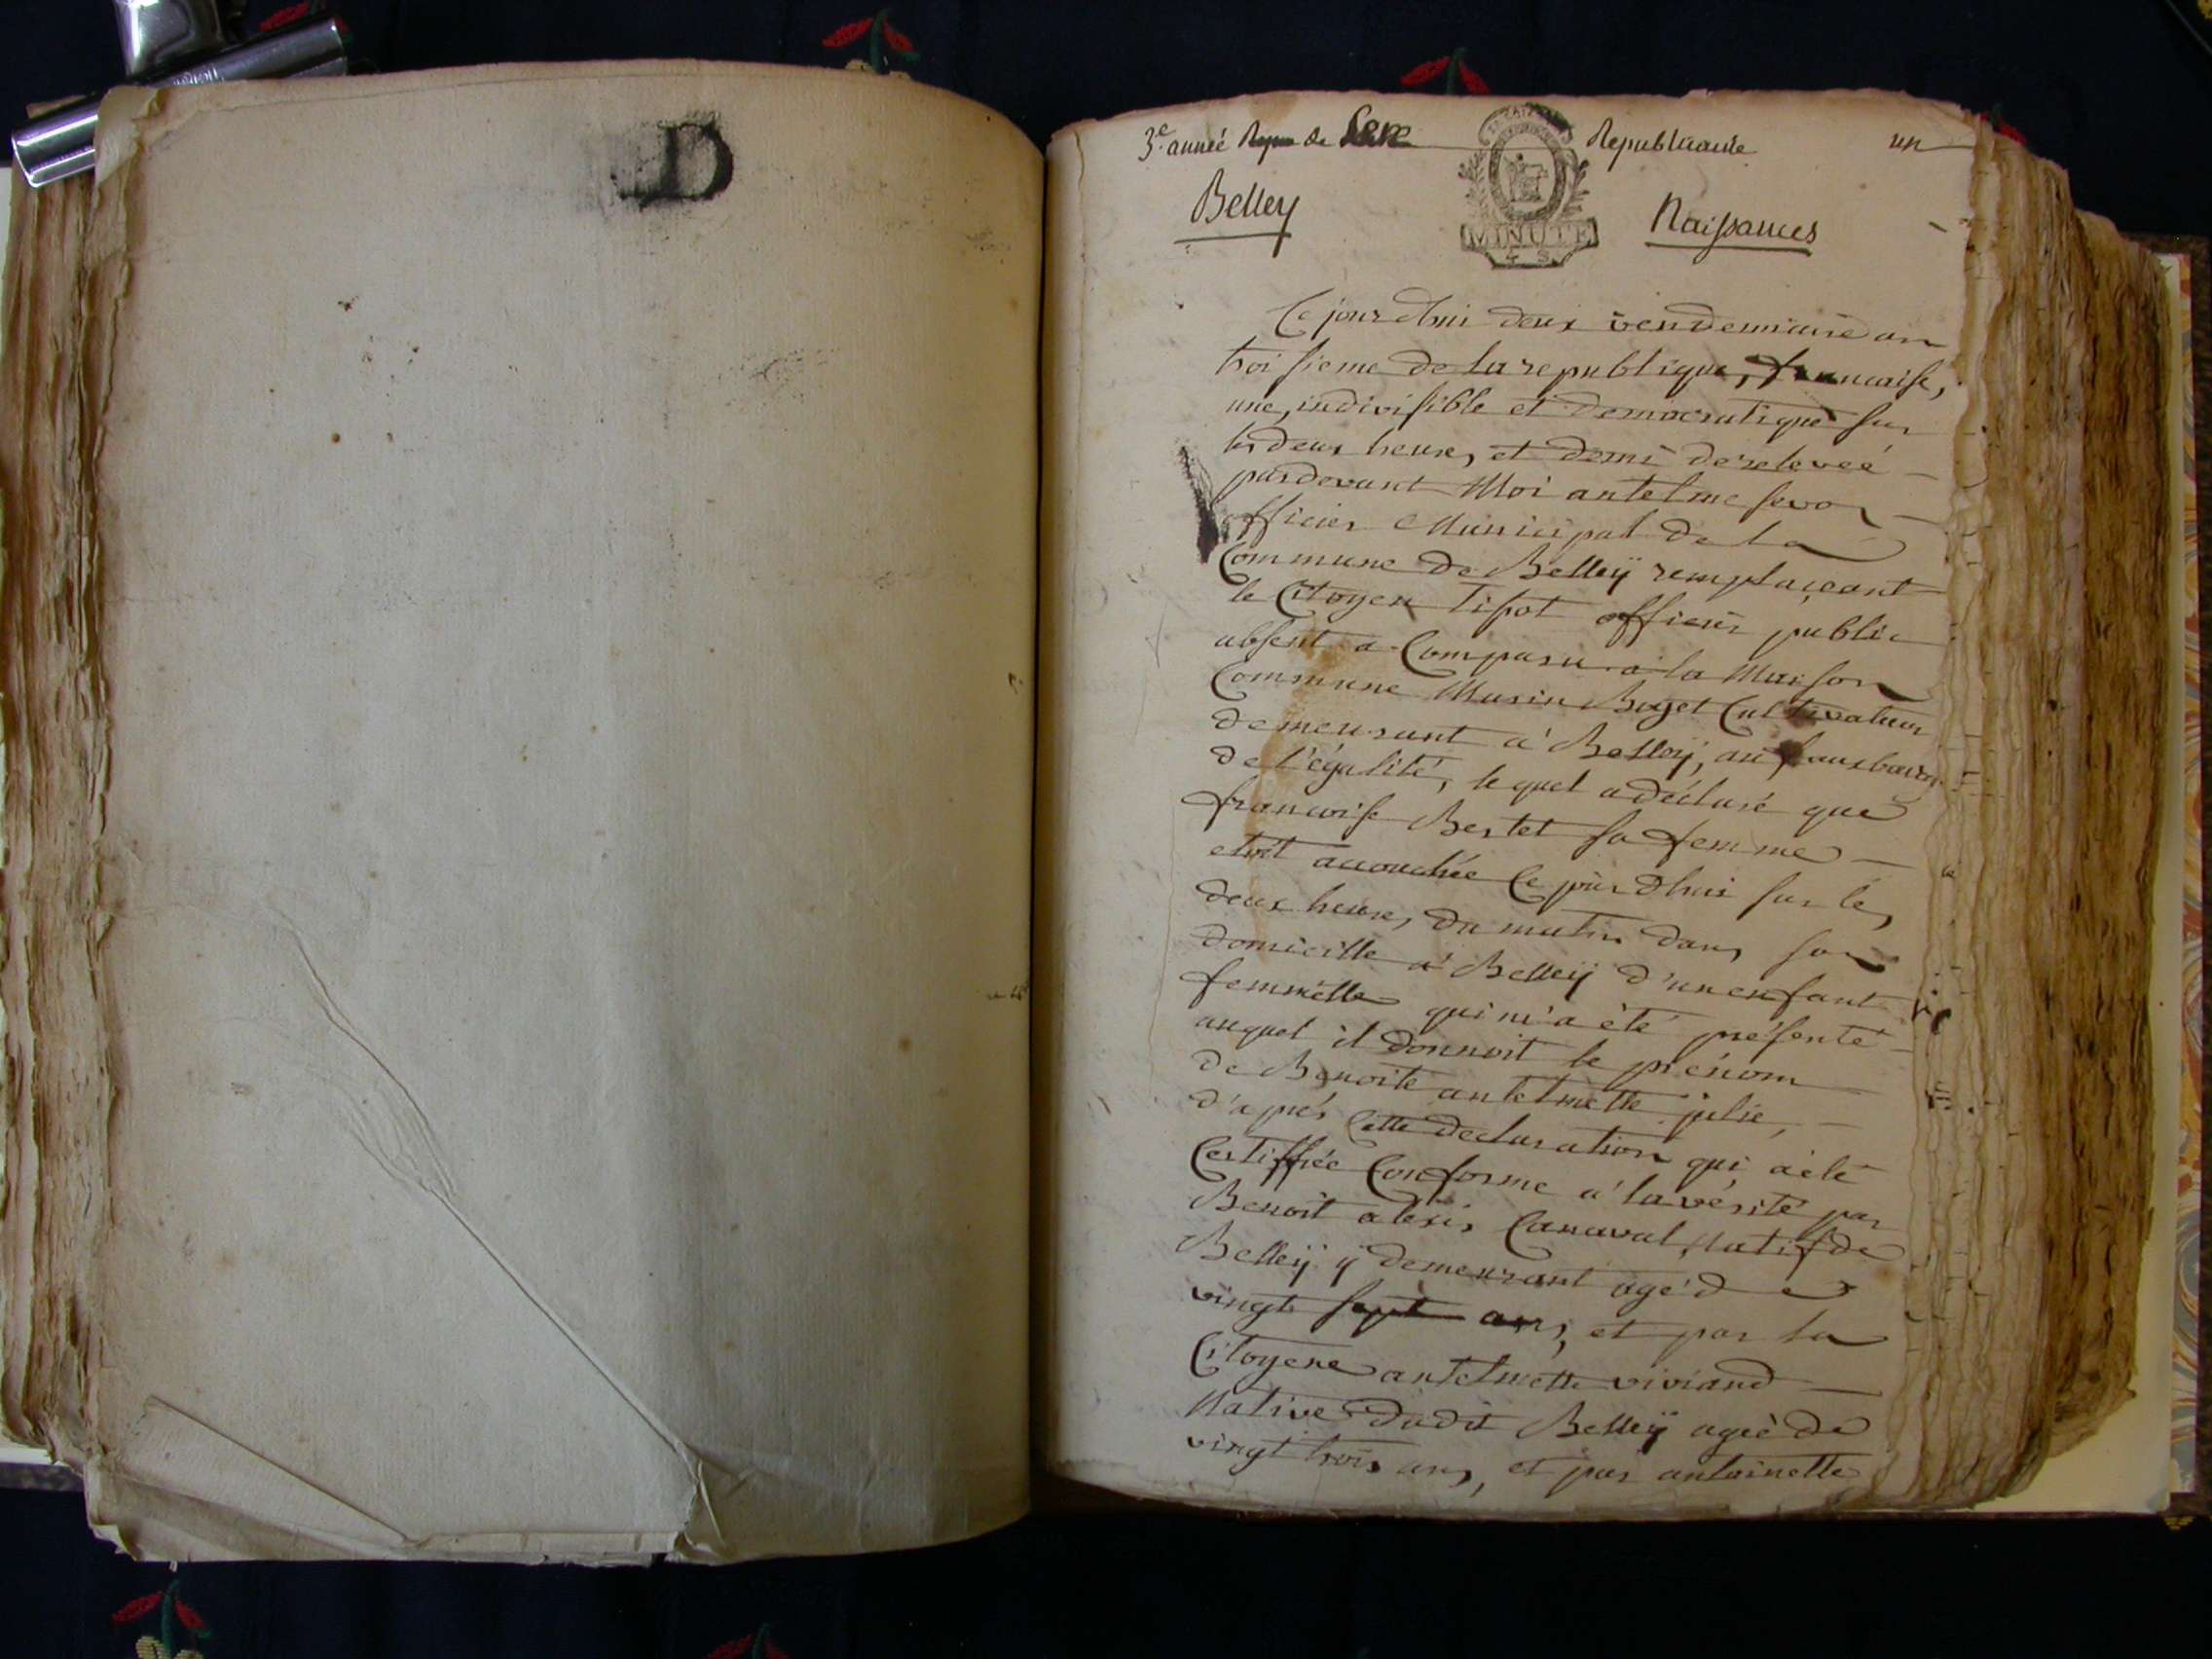 D
3e année de L'ere Republicaine un
MINUTE
4 S.
Belley Naissances
Ce jourdhui deux vendemiaire an
troisieme de la republique, francaise,
une, indivisible et democratique sur
les deux heures et demi de releveé
pardevant Moi antelme
officier Municipal de la
Commune de Belleÿ remplaçeant
le Citoyen tisot officier public
absent a Comparu a la Maison
Commune Marin Boget Cultivateur
demeurant à Belleÿ, au fauxbourg
de l'égalité, le quel a déclaré que
francoise Bertet sa femme
etoit accouchée Ce jourdhui sur les
deux heures du matin dans son
domicille a Belleÿ d'un enfant
femmelle qui m'a été présenté
auquel il donnoit le prénom
de Benoite antelmette julie,
d'aprés Cette declaration qui a été
Certiffiée Conforme a la vérité par
Benoit alexis Canaval Natif de
Belleÿ y demeurant agé de
vingt sept ans, et par la
Citoyene antelmette viviand
Native dudit Belleÿ ageé de
vingt trois ans, et par antoinette